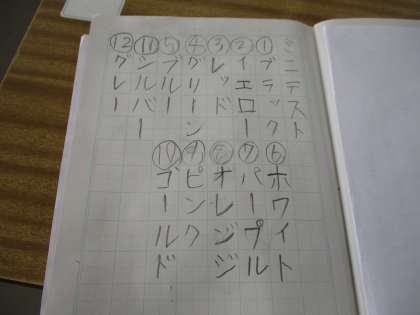 ミニテスト
①ブラック
②イエロー
③レッド
④グリーン
⑤ブルー
⑪シルバー
⑫グレー
⑥ホワイト
⑦パープル
⑧オレンジ
⑨ピンク
⑩ゴールド